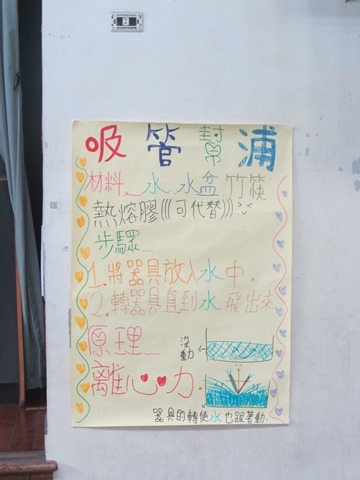 吸管幫浦
材料... 水 水盆 竹筷.
熱熔膠(((可代替)))
步驟...
1.將器具放入水中.
2.轉器具直到水飛出來
原理...
沒動
離心力.
器具的轉使水也跟著動.